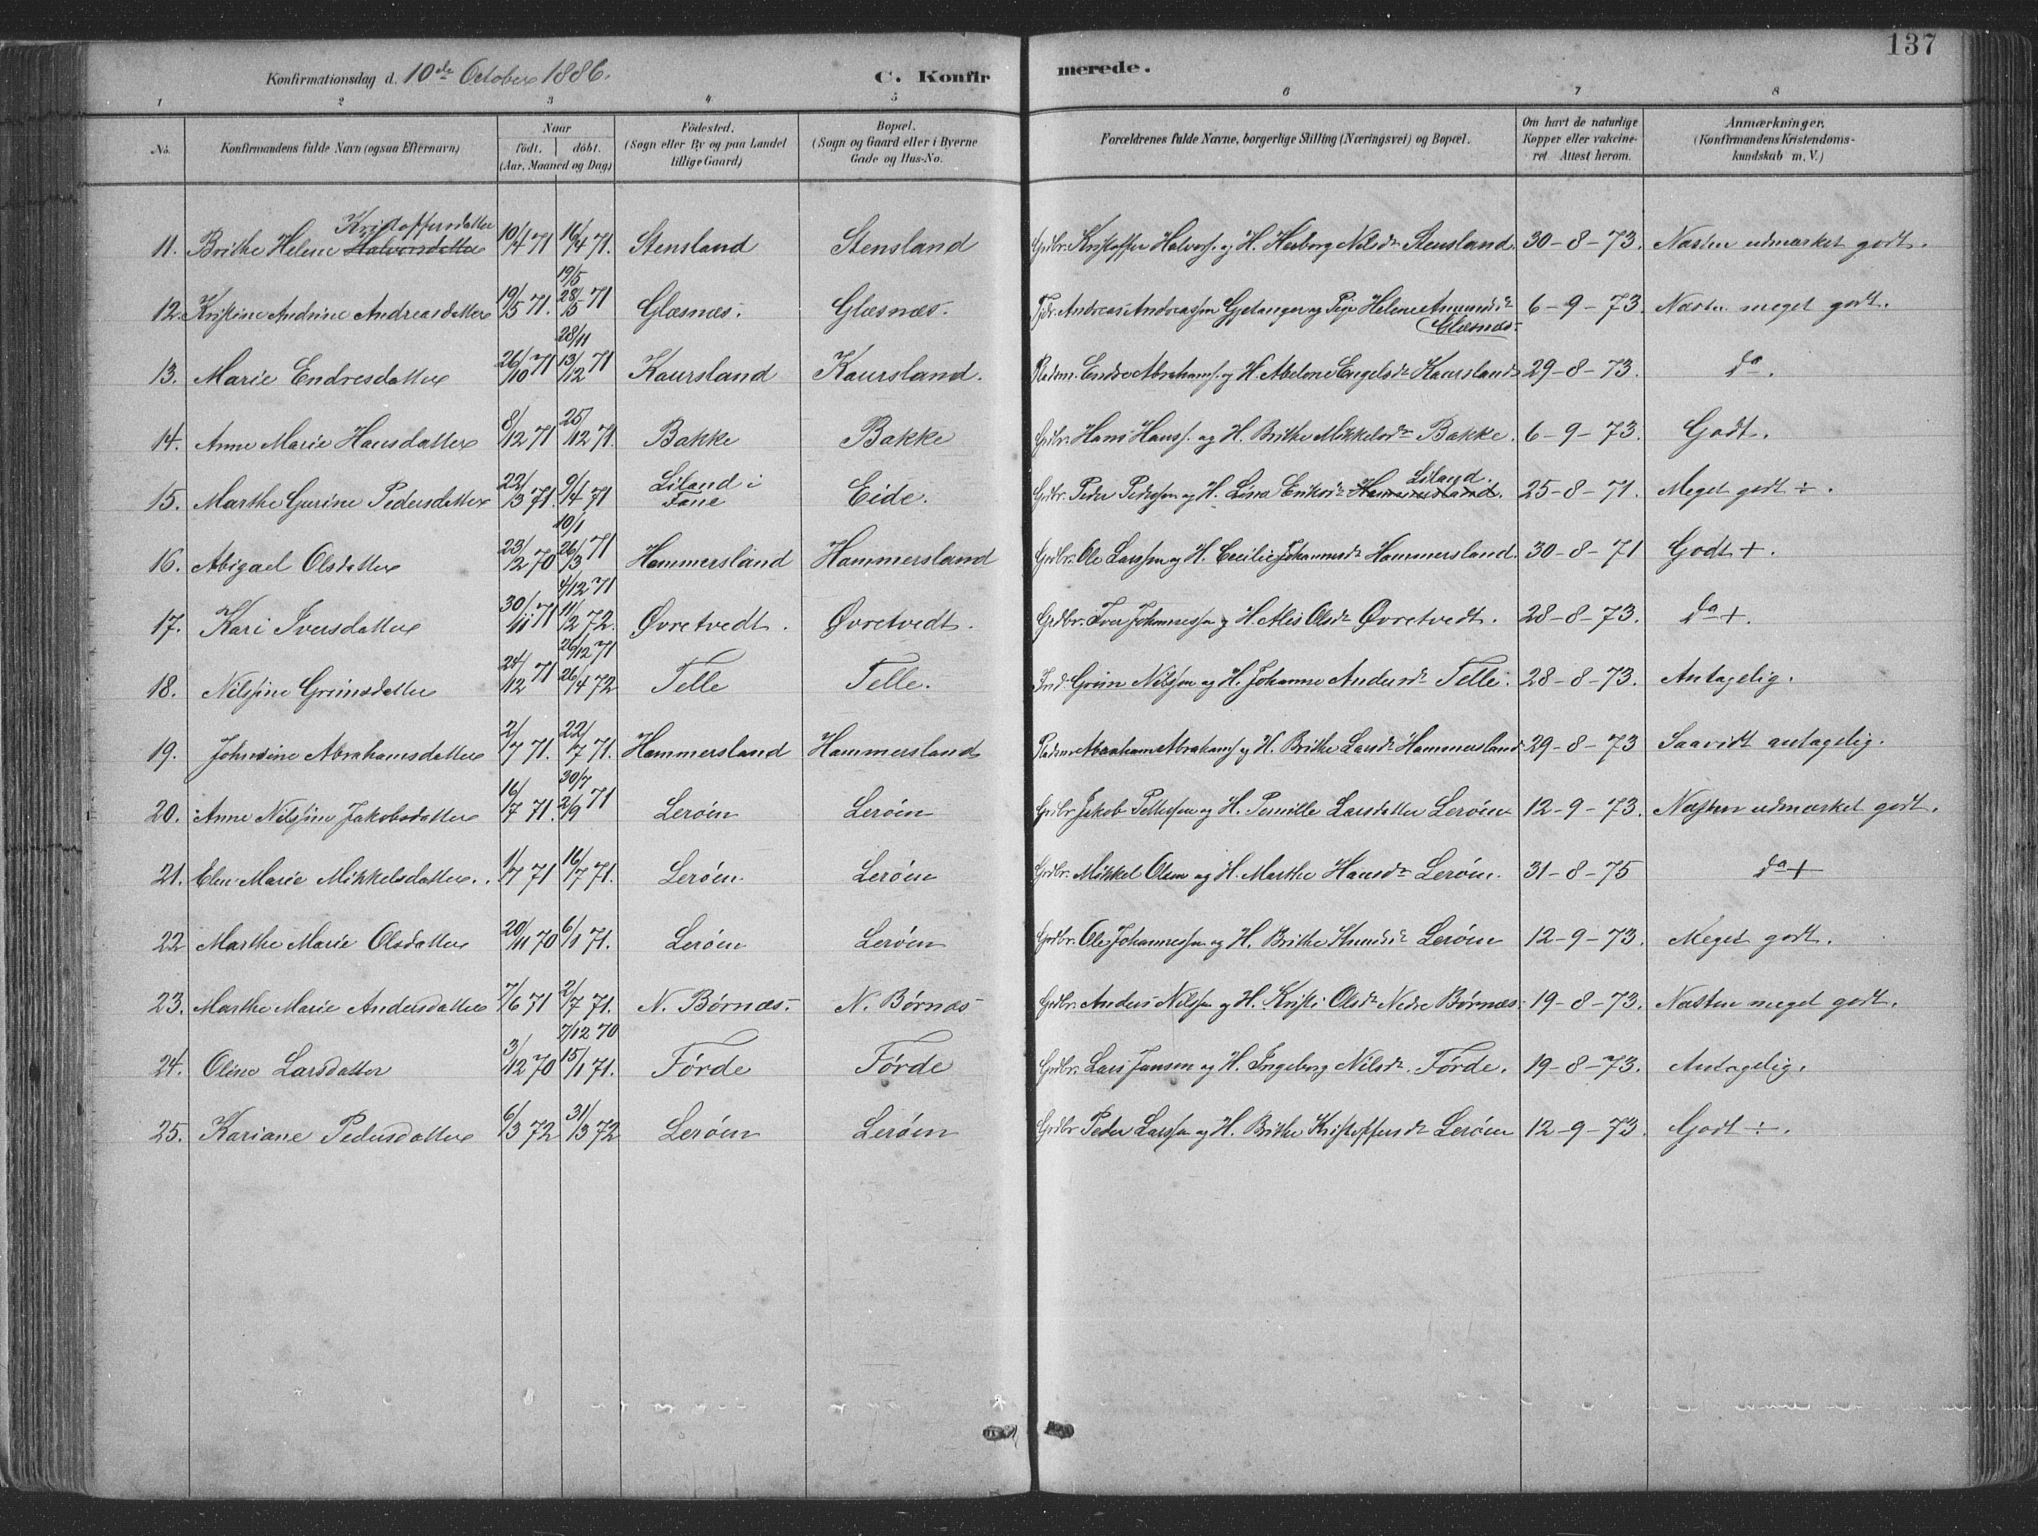 137
Konfirmationsdag d. 10de October 1886.
C. Konfirmerede.
1 2 3 4 5 6 7 8
No. Konfirmandens fulde Navn (ogsaa Efternavn) Naar født. døbt. (Aar, Maaned og Dag) Fødested. (Sogn eller By og paa Landet tillige Gaard) Bopæl. (Sogn og Gaard eller i Byerne Gade og Hus-No. Forældrenes fulde Navne, borgerlige Stilling (Næringsvei) og Bopæl. Om havt de naturlige Kopper eller vakcineret. Attest herom. Anmærkninger. (Konfirmandens Kristendomskundskab m. V.)
Kristoffersdatter
11. Brithe Helene Halvorsdatter 10/4 71 16/4 71. Stensland Stensland Grdbr. Kristoffer Halvors. og H. Herborg Nilsdr Stensland. 30-8-73. Næsten udmærket godt.
19/5
12. Kristine Andrine Andreasdatter 19/5 71. 28/5 71 Glæsnæs. Glæsnæs. Andreas Andreassen Gjetanger og Pige Helene Amundsdr Glæsnæs. 6-9-73. Næsten meget godt.
28/11
13. Marie Endresdatter 26/10 71 13/12 71 Kaursland Kaursland. Pladsm. Endre Abrahams. og H. Abelone Engelsdr Kaursland 29-8-73. do.
14. Anne Marie Hansdatter 8/12 71 25/12 71. Bakke Bakke Grdbr. Hans Hanss. og H. Brithe Mikkelsdr Bakke. 6-9-73. Godt.
15. Marthe Gurine Pedersdatter 22/3 71. 9/4 71 Liland i Fane Eide. Grdbr. Peder Pederssen og H. Lina Eriksdr Hammersland. Liland. 25-8-71. Meget godt ÷.
10/1
16. Abigael Olsdatter 23/12 70 26/3 71 Hammersland Hammersland Grdbr. Ole Larssen og H. Cecilie Johannesdr Hammersland. 30-8-71 Godt +.
4/12 71
17. Kari Iversdatter 30/11 71 11/2 72. Øvretvedt. Øvretvedt. Grdbr. Iver Johannessen og H. Alis Olsdr Øvretvedt. 28-8-73. do +.
26/12 71
18. Nilssine Grimsdatter 24/12 71 26/4 72 Telle Telle. Ind. Grim Nilssen og H. Johanne Andersdr Telle. 28-8-73. Antagelig.
19. Johnsine Abrahamsdatter 2/7 71. 22/7 71. Hammersland Hammersland Pladsm. Abraham Abrahams. og H. Brithe Larsdr Hammersland 29-8-73 Saavidt antagelig.
30/7
20. Anne Nilssine Jakobsdatter 16/7 71. 2/9 71 Lerøen Lerøen Grdbr. Jakob Pettersen og H. Pernille Larsdatter Lerøen 12-9-73. Næsten udmærket godt.
21. Elen Marie Mikkelsdatter. 1/7 71 16/7 71. Lerøen Lerøen Grdbr. Mikkel Olsen og H. Marthe Hansdr Lerøen. 31-8-75 do +
22 Marthe Marie Olsdatter 20/11 70 6/1 71. Lerøen Lerøen Grdbr. Ole Johannessen og H. Brithe Knudsdr Lerøen 12-9-73. Meget godt.
23. Marthe Marie Andersdatter 7/6 71 2/7 71. N. Børnæs. N. Børnæs Grdbr. Anders Nilssen og H. Kristi Olsdr Nedre Børnæs. 19-8-73. Næsten meget godt.
7/12 70
24. Oline Larsdatter 3/12 70 15/1 71. Førde Førde Grdbr. Lars Jansen og H. Ingeborg Nilsdr. Førde. 19-8-73. Antagelig.
25. Kariane Pedersdatter 6/3 72 31/3 72 Lerøen Lerøen Grdbr. Peder Larssen og H. Brithe Kristoffersdr Lerøen 12-9-73. Godt ÷.